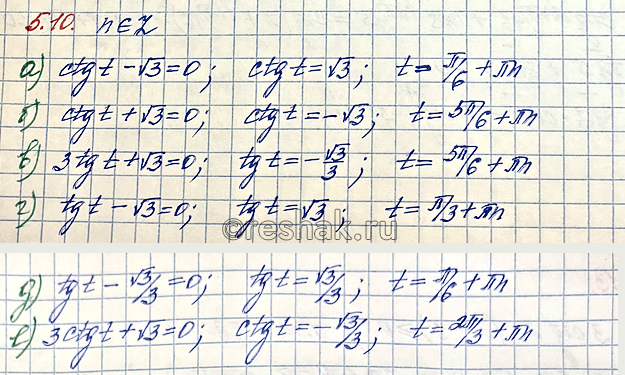 5.10. n∈Z
а) ctg t − √3 = 0; ctg t = √3; t = π/6 + πn
б) ctg t + √3 = 0; ctg t = −√3; t = 5π/6 + πn
в) 3 tg t + √3 = 0; tg t = −√3/3; t = 5π/6 + πn
г) tg t − √3 = 0; tg t = √3; t = π/3 + πn
©reshak.ru
д) tg t − √3/3 = 0; tg t = √3/3; t = π/6 + πn
е) 3 ctg t + √3 = 0; ctg t = −√3/3; t = 2π/3 + πn